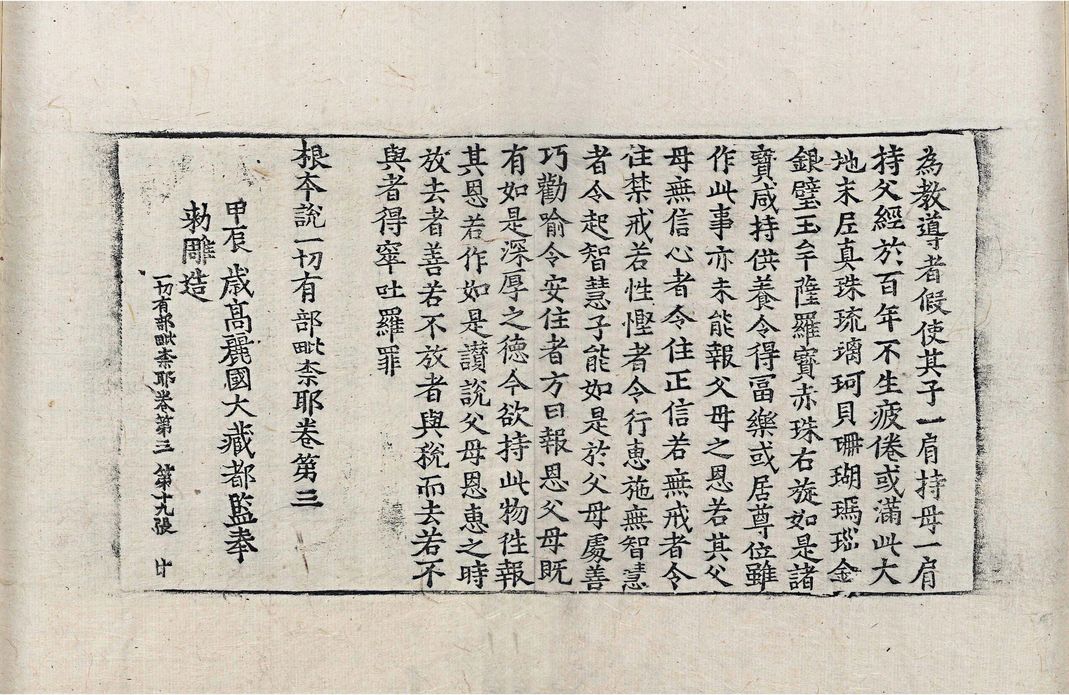 為教導者假使其子一肩持母一肩
持父經於百年不生疲倦或滿此大
地末尼真珠琉璃珂貝珊瑚瑪瑙金
銀璧玉牟薩羅寶赤珠右旋如是諸
寶咸持供養令得冨樂或居尊位雖
作此事亦未能報父母之恩若其父
母無信心者令住正信若無戒者令
住禁戒若性慳者令行恵施無智慧
者令起智慧子能如是於父母處善
巧勸喻令安住者方曰報恩父母旣
有如是深厚之德今欲持此物徃報
其恩若作如是讃說父母恩恵之時
放去者善若不放者與稅而去若不
與者得窣吐羅罪
根本說一切有部毗柰耶卷第三
甲辰歲高麗國大藏都監奉
勑雕造
一切有部毗柰耶卷第三 第十九張 甘